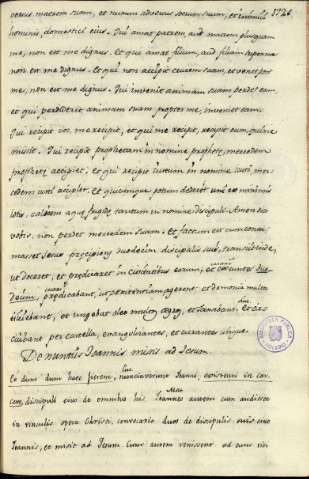 versus matrem suam, et nurum adversus socrum suam, et inimici 172t
hominis, domestici eius. Qui amat patrem, aut matrem plusquam
me, non est me dignus. Et qui amat filium, aut filiam super me
non est me dignus. Et qui non accipit crucem suam, et venit post
me, non est me dignus. Qui invenit animam suam perdet eam,
et qui perdiderit animam suam propter me, inveniet eam.
Qui recipit vos me recipit, et qui me recipit, recipit eum, qui me
misit. Qui recipit prophetam in nomine prophete, mercedem
prophete accipiet, et qui recipit iustum in nomine iusti, mer-
cedem iusti accipiet. Et quicumque potum dederit uni ex minimis
istis, calicem aque frigide tantum in nomine discipuli. Amen dico
vobis, non perdet mercedem suam. Et factum est cum consum-
masset Iesus precipiens duodecim discipulis suis, transiit inde,
ut doceret, et predicaret in civitatibus eorum, et
predicabant, ut penitentiam agerent: et demonia multa
eiiciebant, et ungebant oleo multos egros, et sanabant,
cuibant per castella, evangelizantes, et curantes ubique.
De nuntiis Ioannis misis ad Iesum
Io
cere, discipuli eius de omnibus his Ioannes autem cum audisset
in vinculis opera Christi, convocavit duos de discipulis suis
Ioannis, et misit ad Iesum. Cum autem venissent ad eum viri